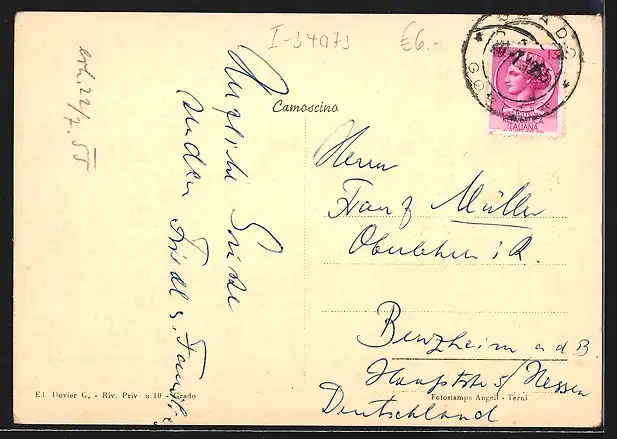 I-34073 €6.-
erh. 22/7.55
Herzliche Grüsse
senden Friedl u. Familie
Camoscina
GRADO
ITALIANA
Herrn
Franz Müller
Oberlehrer i.R.
Benzheim a d B.
Hauptstr 5/Hessen
Deutschland
Ed. Dovier G. - Riv. Priv n.10 - Grado
Fotostamps Angeli - Terni